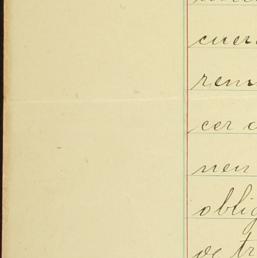 cuer
rem
cer
nen
oblig
de tr